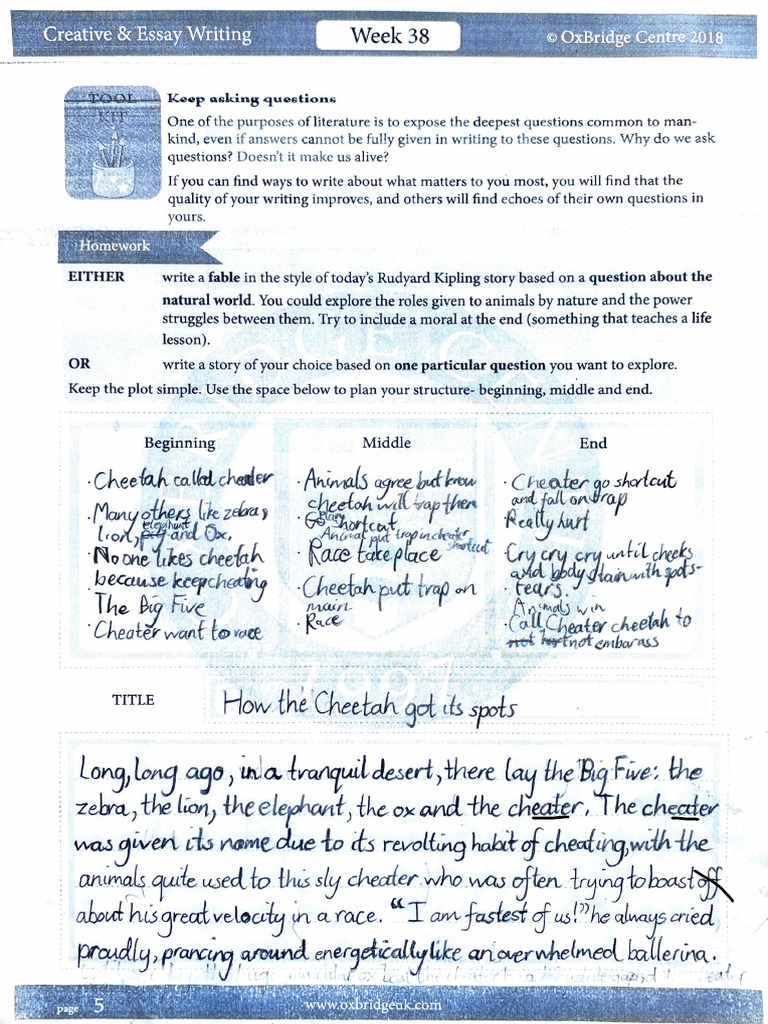 Creative & Essay Writing
Week 38
© OxBridge Centre 2018
TOOL
KIT
Keep asking questions
One of the purposes of literature is to expose the deepest questions common to man-
kind, even if answers cannot be fully given in writing to these questions. Why do we ask
questions? Doesn't it make us alive?
If you can find ways to write about what matters to you most, you will find that the
quality of your writing improves, and others will find echoes of their own questions in
yours.
Homework
EITHER write a fable in the style of today's Rudyard Kipling story based on a question about the
natural world. You could explore the roles given to animals by nature and the power
struggles between them. Try to include a moral at the end (something that teaches a life
lesson).
OR write a story of your choice based on one particular question you want to explore.
Keep the plot simple. Use the space below to plan your structure- beginning, middle and end.
Beginning
· Cheetah called cheater
· Many others like zebra,
elephant
lion, pig and Ox.
· No one likes cheetah
because keep cheating
· The Big Five
· Cheater want to race
Middle
· Animals agree but know
cheetah will trap them
· Go shortcut
Animal put trap in cheater
shortcut
· Race take place
· Cheetah put trap on
main
· Race
End
· Cheater go shortcut
and fall on trap
· Really hurt
· Cry cry cry until cheeks
and body stain with spots-
tears.
Animals win
· Call Cheater cheetah to
not not embarass
TITLE
How the Cheetah got its spots
Long, long ago, in a tranquil desert, there lay the Big Five: the
zebra, the lion, the elephant, the ox and the cheater. The cheater
was given its name due to its revolting habit of cheating, with the
animals quite used to this sly cheater who was often trying to boast off
about his great velocity in a race. "I am fastest of us!" he always cried
proudly, prancing around energetically like an overwhelmed ballerina.
page 5
www.oxbridgeuk.com